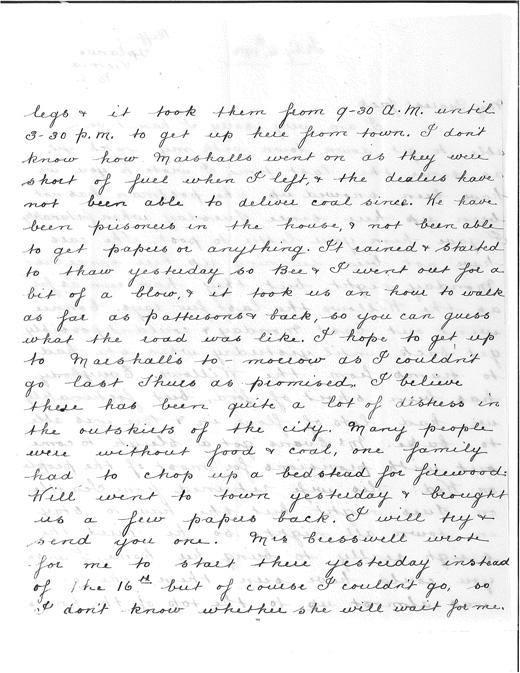 legs & it took them from 9-30 A.M. until
3-30 p.m. to get up here from town. I don't
know how Marshalls went on as they were
short of fuel when I left, & the dealers have
not been able to deliver coal since. We have
been prisoners in the house, & not been able
to get papers or anything. It rained & started
to thaw yesterday so Bee & I went out for a
bit of a blow, & it took us an hour to walk
as far as pattersons & back, so you can guess
what the road was like. I hope to get up
to Marshalls to-morrow as I couldn't
go last Thurs as promised. I believe
there has been quite a lot of distress in
the outskirts of the city. Many people
were without food & coal, one family
had to chop up a bedstead for firewood.
Will went to town yesterday & brought
us a few papers back. I will try &
send you one. Mrs Cresswell wrote
for me to start there yesterday instead
of the 16th but of course I couldn't go, so
I don't know whether she will wait for me.